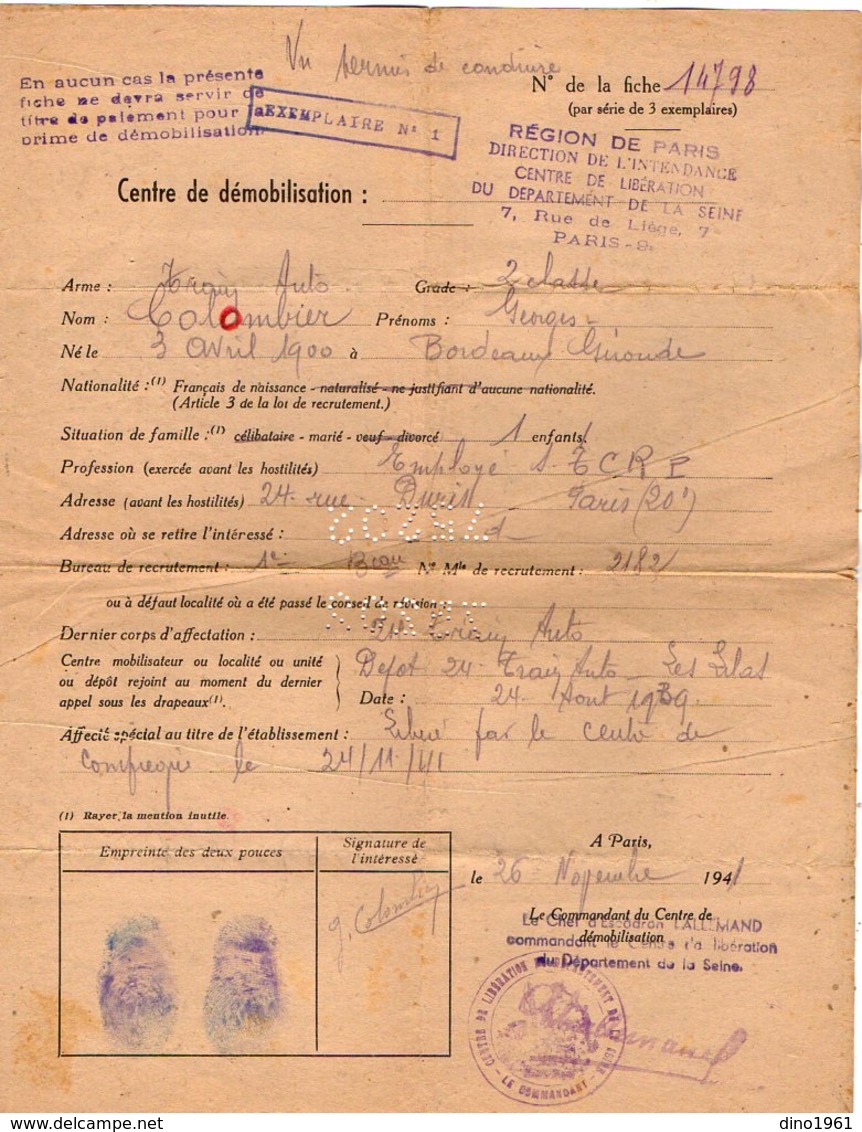 Vu permis de conduire
En aucun cas la présente
fiche ne devra servir de
titre de paiement pour la
prime de démobilisation
EXEMPLAIRE N° 1
N° de la fiche 14798
(par série de 3 exemplaires)
RÉGION DE PARIS
DIRECTION DE L'INTENDANCE
CENTRE DE LIBÉRATION
DU DÉPARTEMENT DE LA SEINE
7, Rue de Liége, 7
PARIS-9e
Centre de démobilisation :
Arme : Train Auto Grade : 2 classe
Nom : Colombier Prénoms : Georges
Né le 3 Avril 1900 à Bordeaux Gironde
Nationalité : (1) Français de naissance - naturalisé - ne justifiant d'aucune nationalité.
(Article 3 de la loi de recrutement.)
Situation de famille : (1) célibataire - marié - veuf - divorcé 1 enfants
Profession (exercée avant les hostilités) Employé S.T.C.R.P
Adresse (avant les hostilités) 24 rue Duris Paris (20e)
Adresse où se retire l'intéressé : d
Bureau de recrutement : 1er Beau N° Mle de recrutement : 2182
ou à défaut localité où a été passé le conseil de révision :
Dernier corps d'affectation : Train Auto
Centre mobilisateur ou localité ou unité
ou dépôt rejoint au moment du dernier
appel sous les drapeaux (1).
Depot 24 Train Auto - Les Lilas
Date : 24 Aout 1939
Affecté spécial au titre de l'établissement : Libéré par le centre de
Compiegne le 24/11/41
(1) Rayer la mention inutile.
Empreinte des deux pouces
Signature de
l'intéressé
g. Colombier
A Paris,
le 26 Novembre 1941
Le Commandant du Centre de
démobilisation
Le Chef d'Escadron LALLEMAND
commandant le Centre de libération
du Département de la Seine.
CENTRE DE LIBÉRATION DU DÉPARTEMENT DE LA SEINE
- LE COMMANDANT -
Lallemand
dino1961